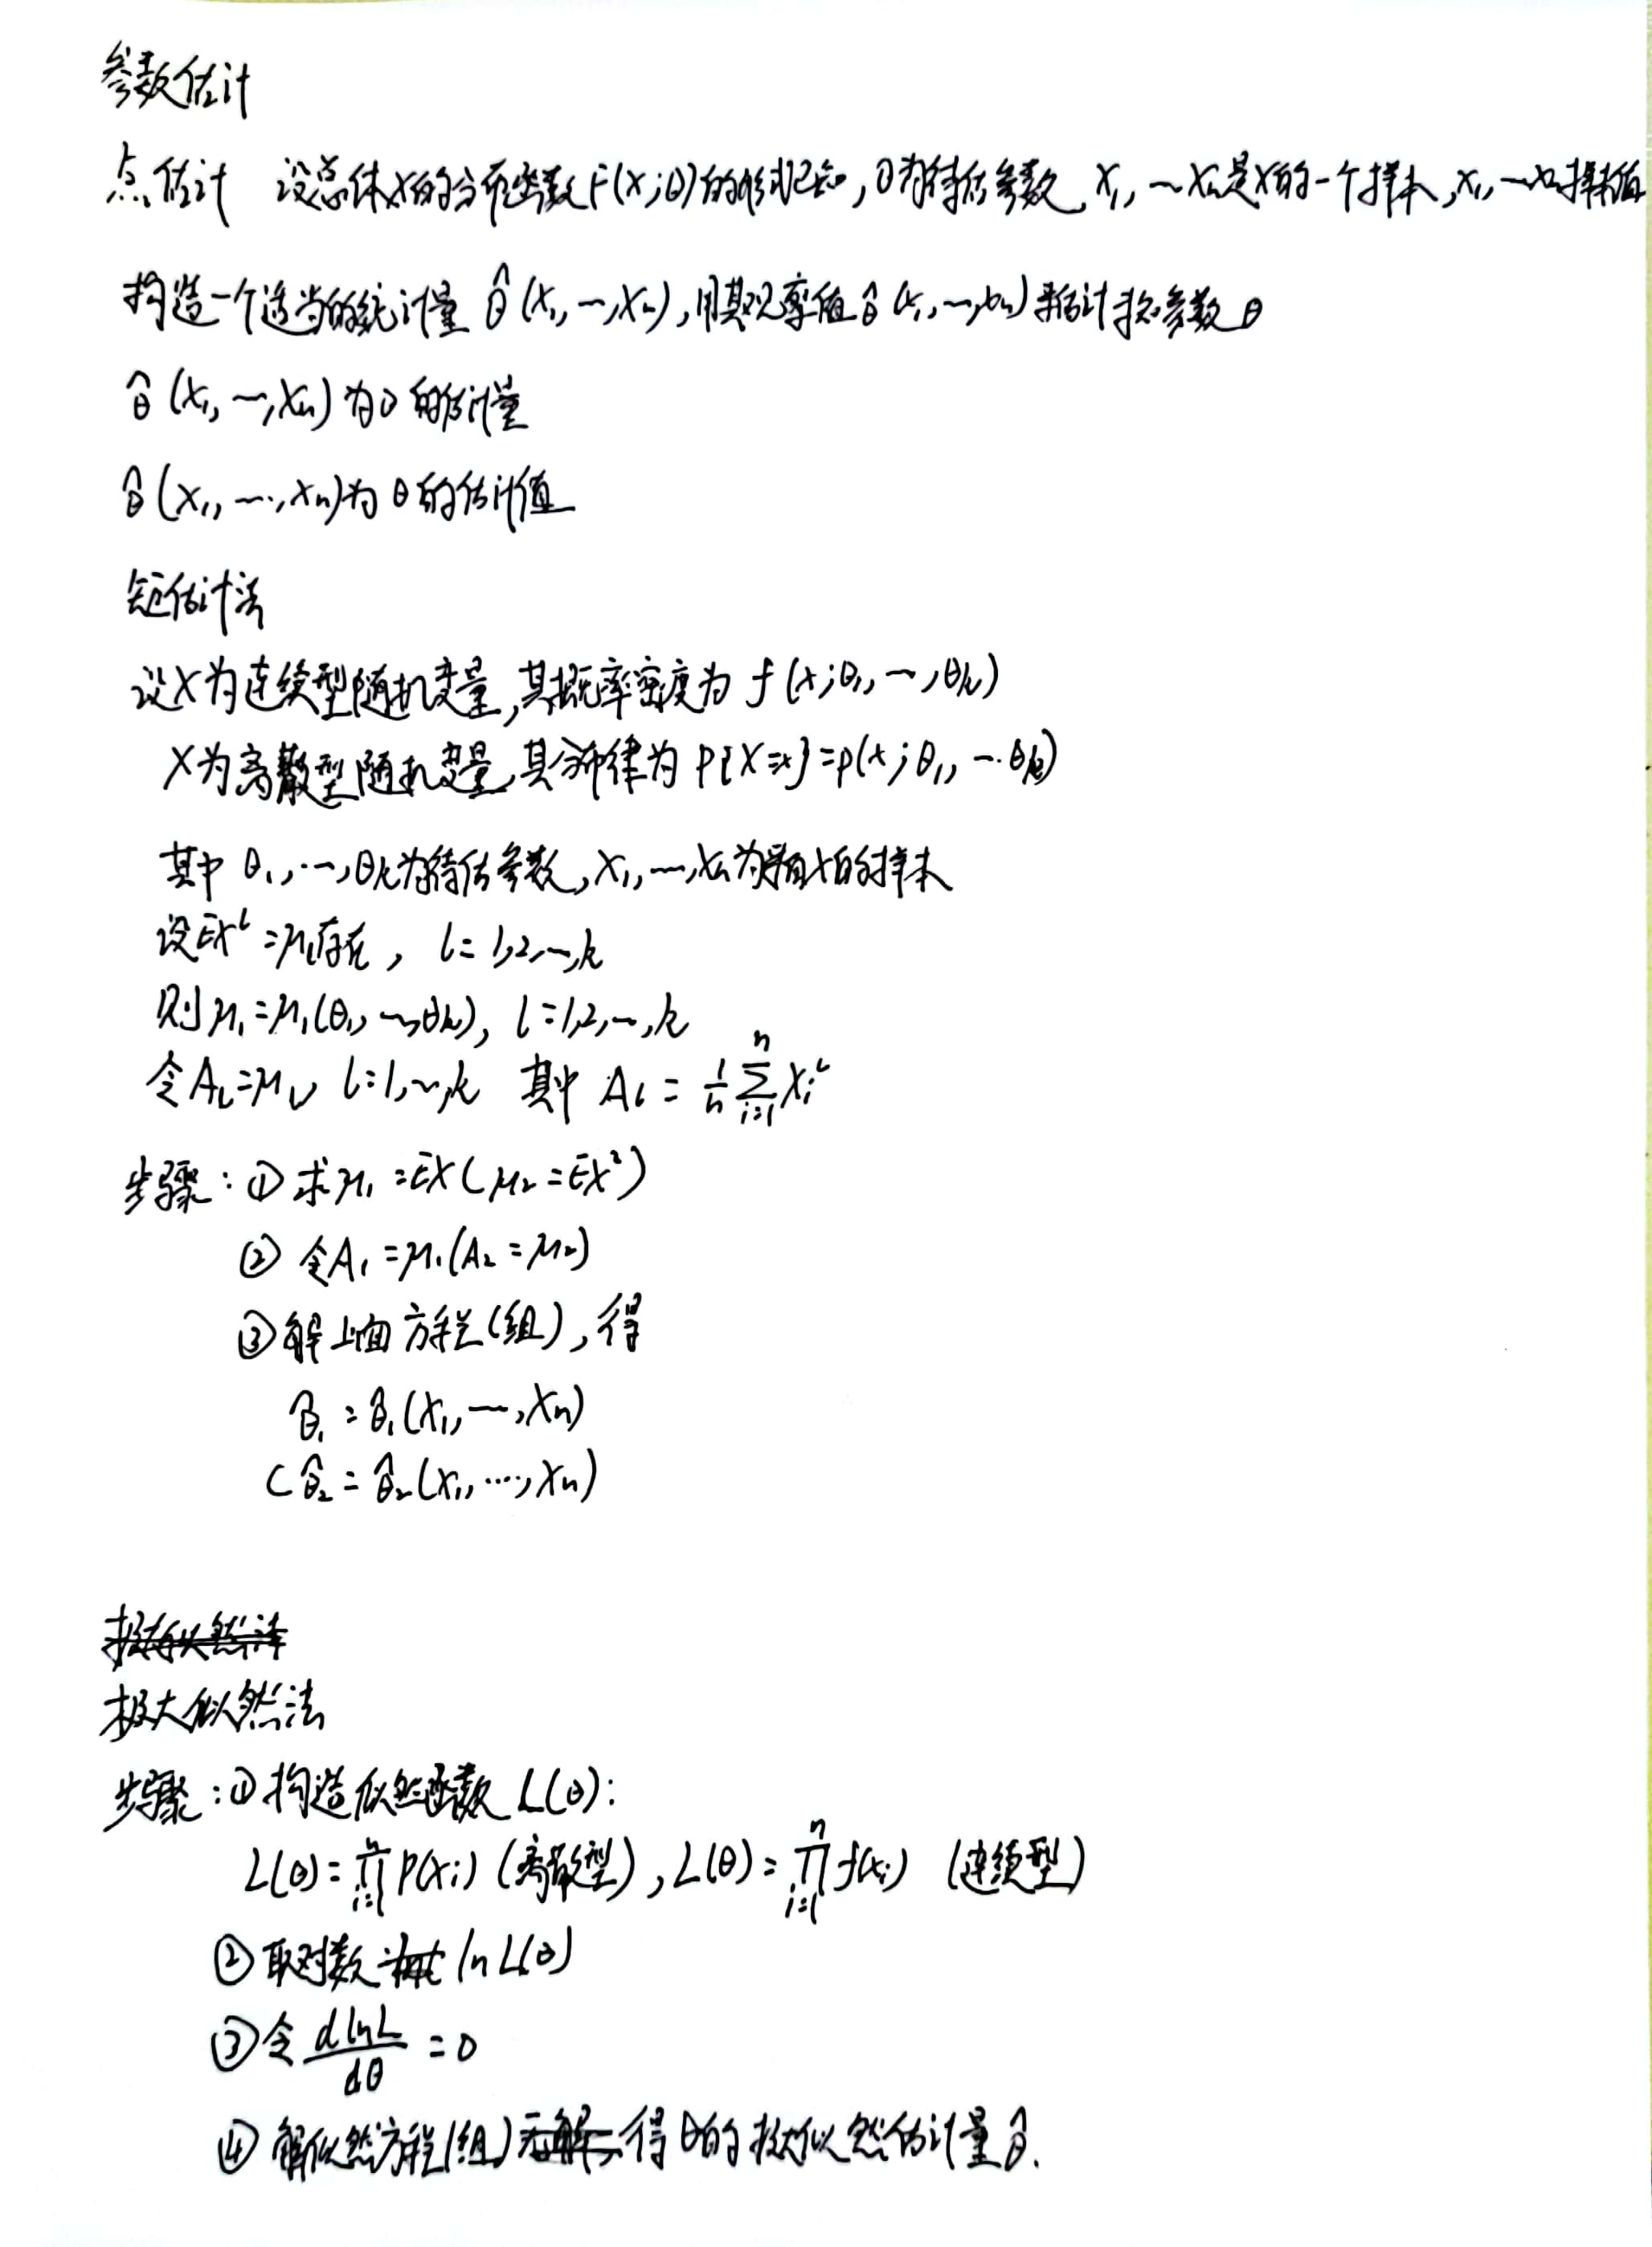 参数估计
点估计 设总体X的分布函数F(x;θ)的形式已知,θ为待估参数,X1,…Xn是X的一个样本,x1,…xn样本值
构造一个适当的统计量 θ̂(X1,…,Xn),用其观察值θ̂(x1,…,xn)来估计 参数θ
θ̂(X1,…,Xn)为θ的估计量
θ̂(x1,…,xn)为θ的估计值
矩估计法
设X为连续型随机变量,其概率密度为f(x;θ1,…,θk)
X为离散型随机变量,其分布律为P{X=x}=p(x;θ1,…θk)
其中θ1,…,θk为待估参数,X1,…,Xn为来自X的样本
设EX^l=μl存在, l=1,2,…,k
则μ1=μ1(θ1,…,θk), l=1,2,…,k
令Al=μl, l=1,…,k 其中 Al=1/n ∑_{i=1}^{n} Xi^l
步骤:①求μ1=EX(μ2=EX²)
②令A1=μ1(A2=μ2)
③解上面方程(组),得
θ̂1=θ̂1(X1,…,Xn)
(θ̂2=θ̂2(X1,…,Xn)
极大似然法
步骤:①构造似然函数L(θ):
L(θ)=∏_{i=1}^{n} P(xi)(离散型),L(θ)=∏_{i=1}^{n} f(xi) (连续型)
②取对数 ln L(θ)
③令 dlnL/dθ =0
④解似然方程(组) 得θ的极大似然估计量θ̂.